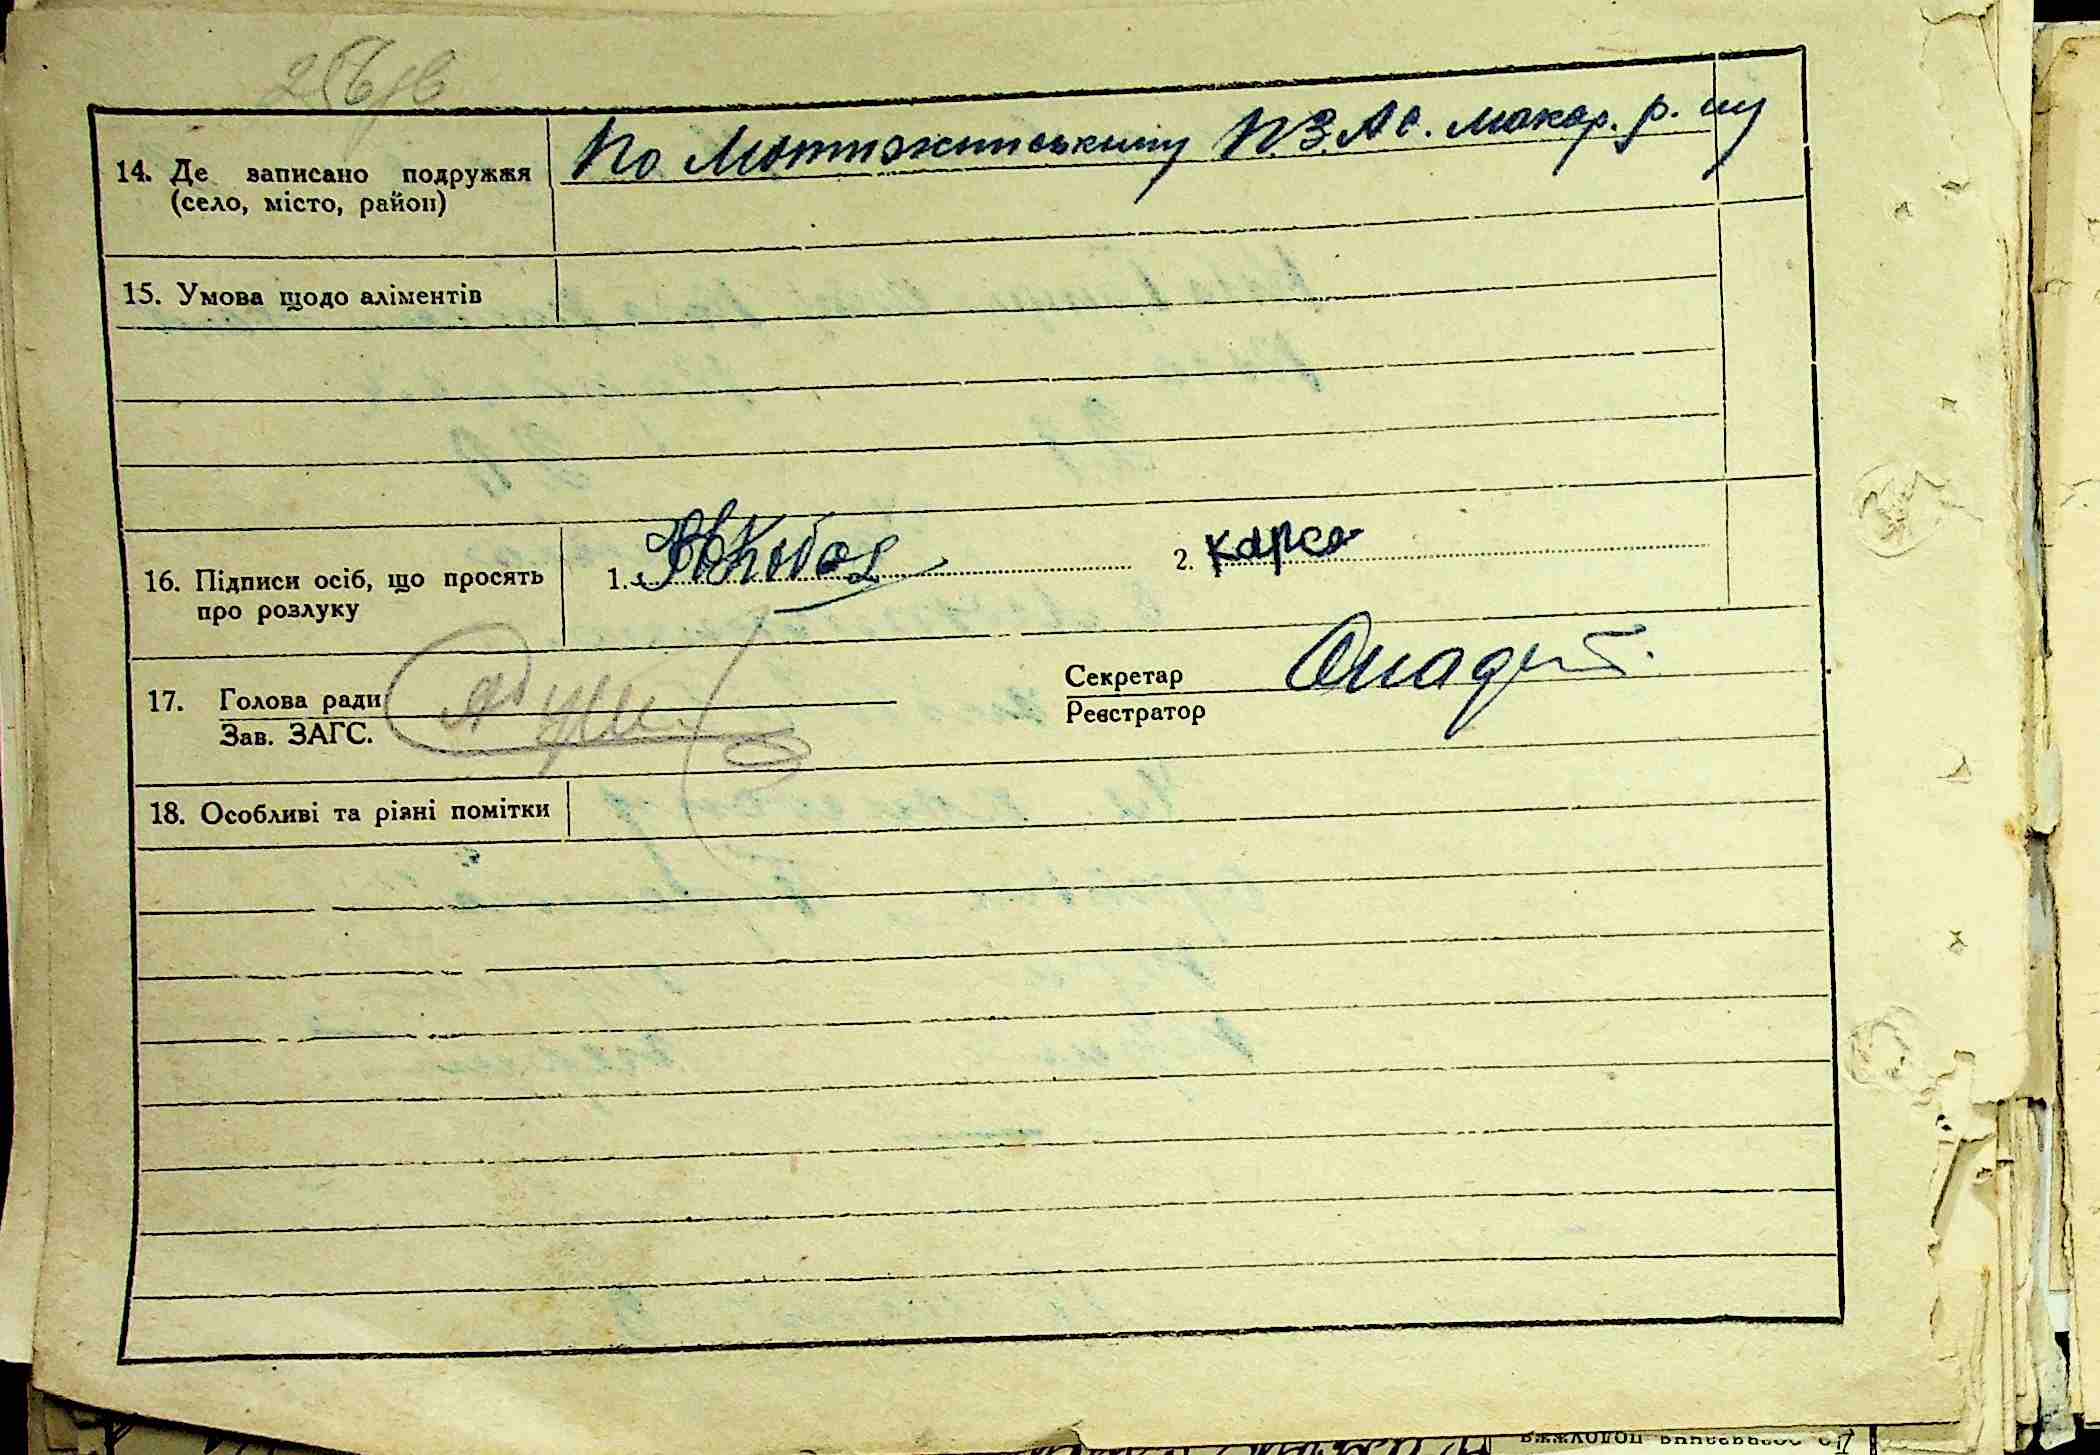 14. Де записано подружжя
(село, місто, район)
По Мотижинському П.З.А.С. Макар. р-ну
15. Умова щодо аліментів
16. Підписи осіб, що просять
про розлуку
1.
2. Карсо
17. Голова ради
Зав. ЗАГС.
Секретар
Реєстратор
18. Особливі та різні помітки